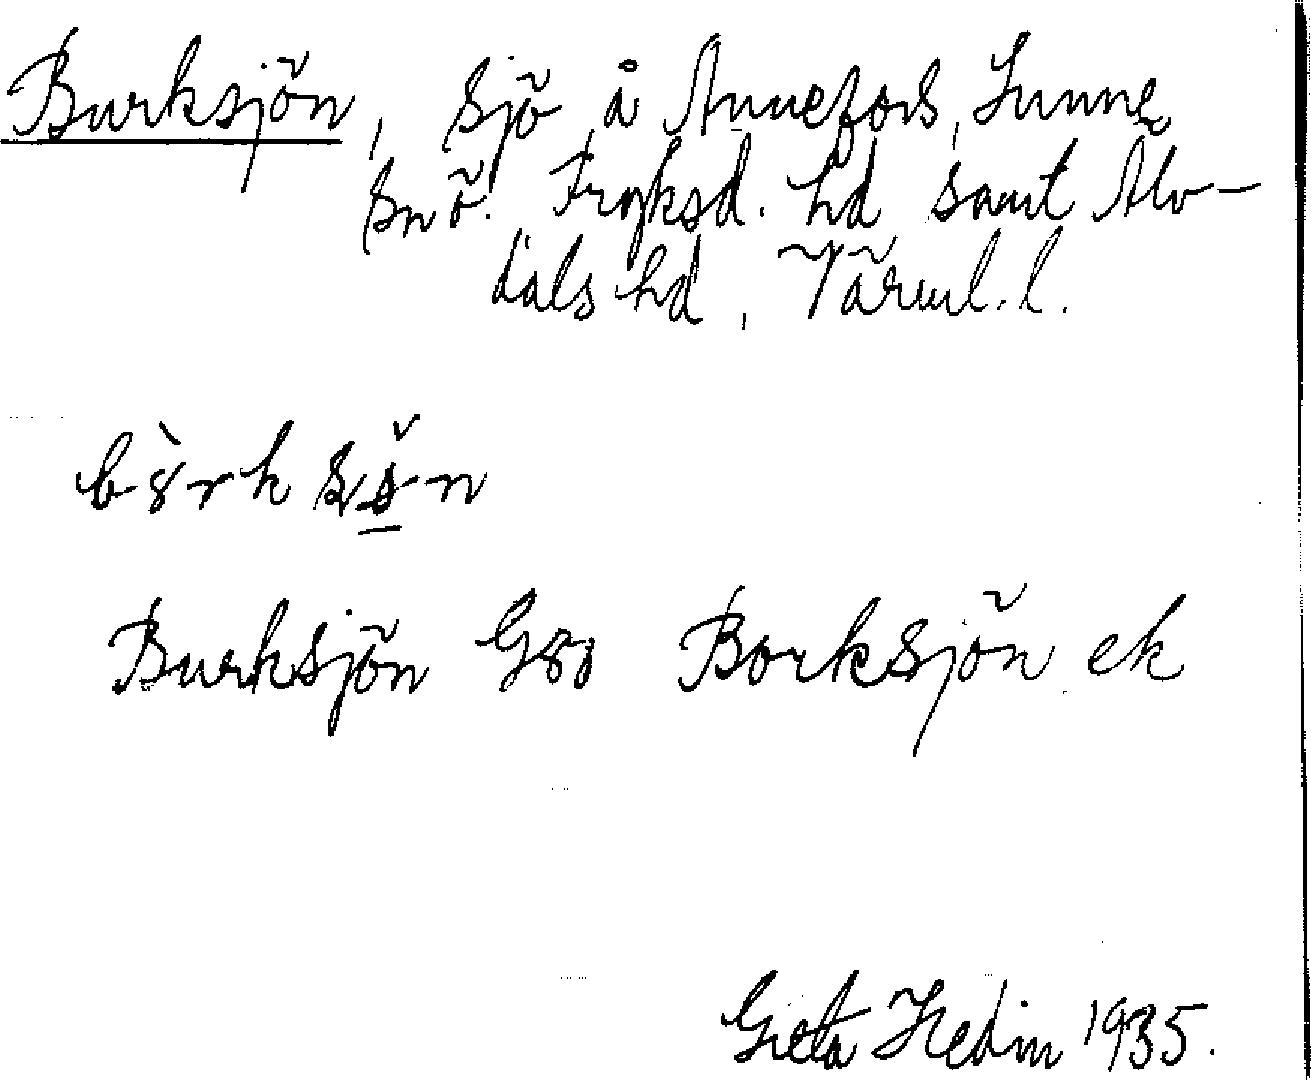 Burksjön, sjö, å Annefors, Sunne
sn ö. Fryksd. hd samt Älv-
dals hd, Värml. l.
Burksjön Gso Borksjön ek
Greta Hedin 1935.